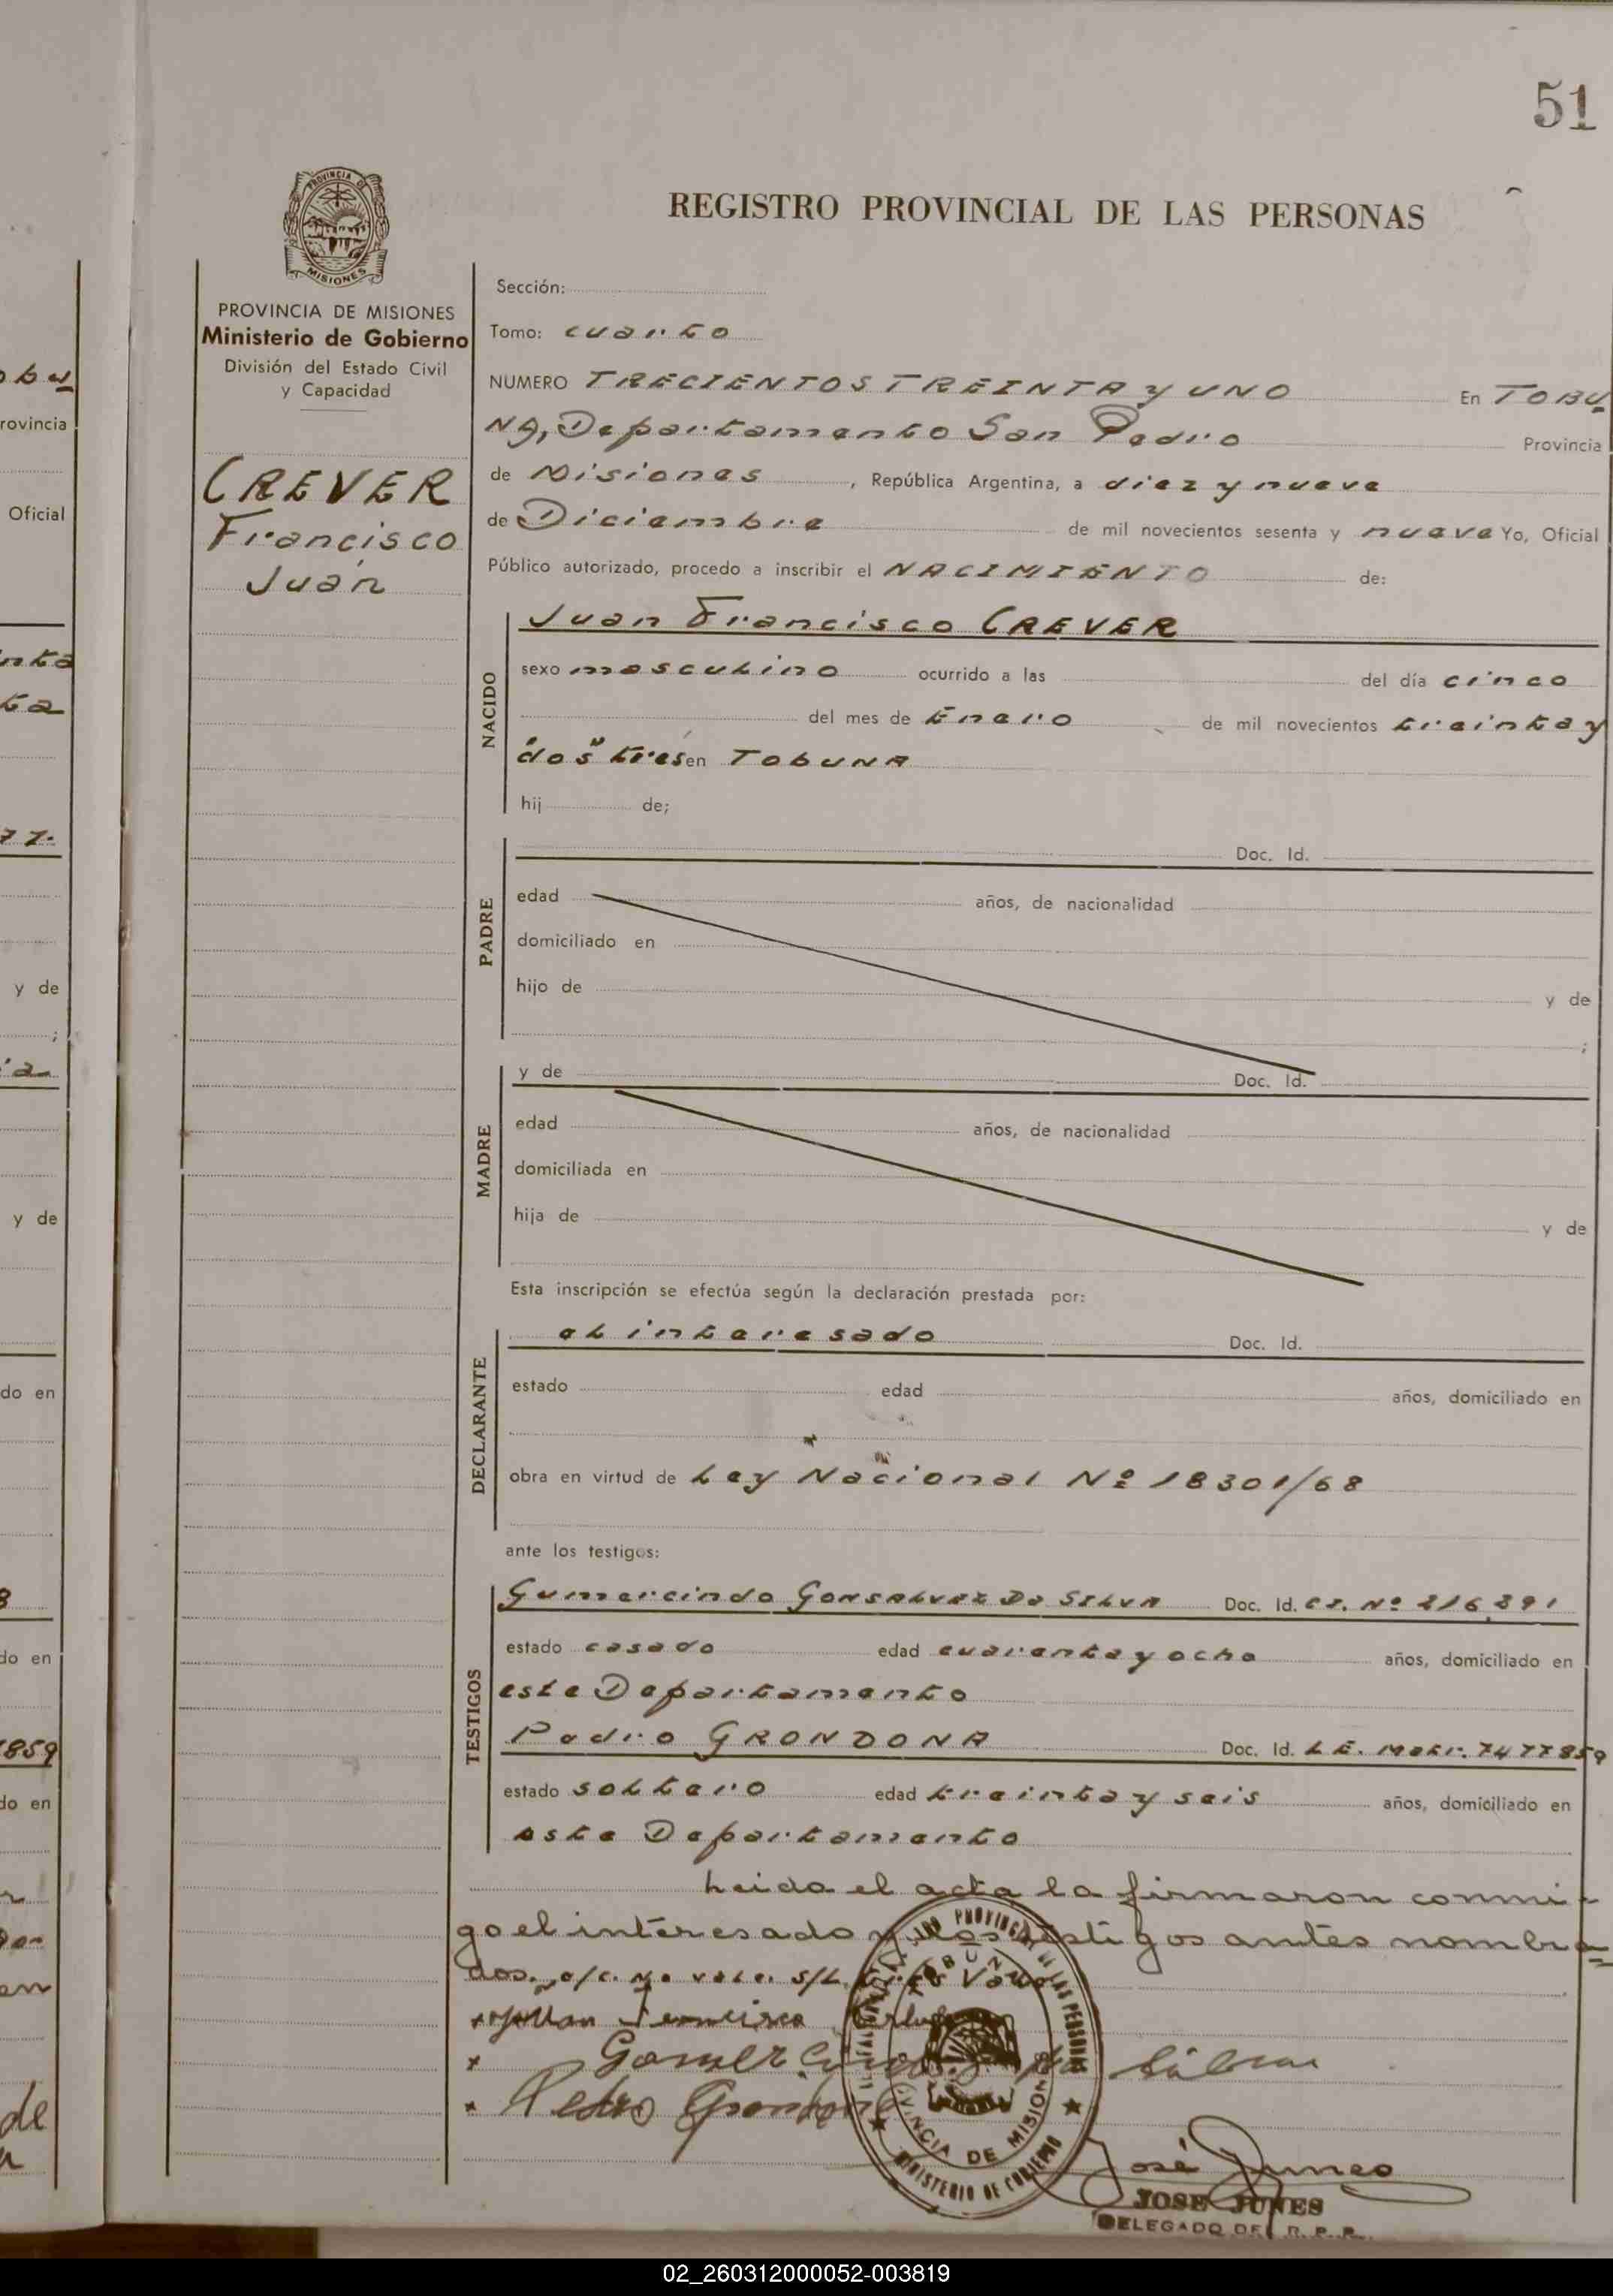 51
REGISTRO PROVINCIAL DE LAS PERSONAS
PROVINCIA DE MISIONES
Ministerio de Gobierno
División del Estado Civil
y Capacidad
CREVER
Francisco
Juan
Sección:
Tomo: cuarto
NUMERO TRECIENTOS TREINTA y UNO En TOBU
NA, Departamento San Pedro Provincia
de Misiones, República Argentina, a diez y nueve
de Diciembre de mil novecientos sesenta y nueve Yo, Oficial
Público autorizado, procedo a inscribir el NACIMIENTO de:
NACIDO
Juan Francisco CREVER
sexo masculino ocurrido a las del día cinco
del mes de Enero de mil novecientos treinta y
"dos" tres en TobUNA
hij de;
PADRE
Doc. Id.
edad años, de nacionalidad
domiciliado en
hijo de y de
;
MADRE
y de Doc. Id.
edad años, de nacionalidad
domiciliada en
hija de y de
Esta inscripción se efectúa según la declaración prestada por:
DECLARANTE
el interesado Doc. Id.
estado edad años, domiciliado en
obra en virtud de Ley Nacional Nº 18301/68
ante los testigos:
TESTIGOS
Gumercindo GONSALVEZ Da SILVA Doc. Id. C.I. Nº 216,291
estado casado edad cuarenta y ocho años, domiciliado en
este Departamento
Pedro GRONDONA Doc. Id. L.E. Matr. 7477859
estado soltero edad treinta y seis años, domiciliado en
este Departamento
Leida el acta la firmaron conmi-
go el interesado y los testigos antes nombra
dos. e/c. no vale. s/l. tres Vale
Juan Francisco
Gomercindo da Silva
Pedro Grondona
TOBUNA
PROVINCIA DE MISIONES
MINISTERIO DE GOBIERNO
José Junes
JOSE JUNES
DELEGADO DEL R. P. P.
02_260312000052-003819